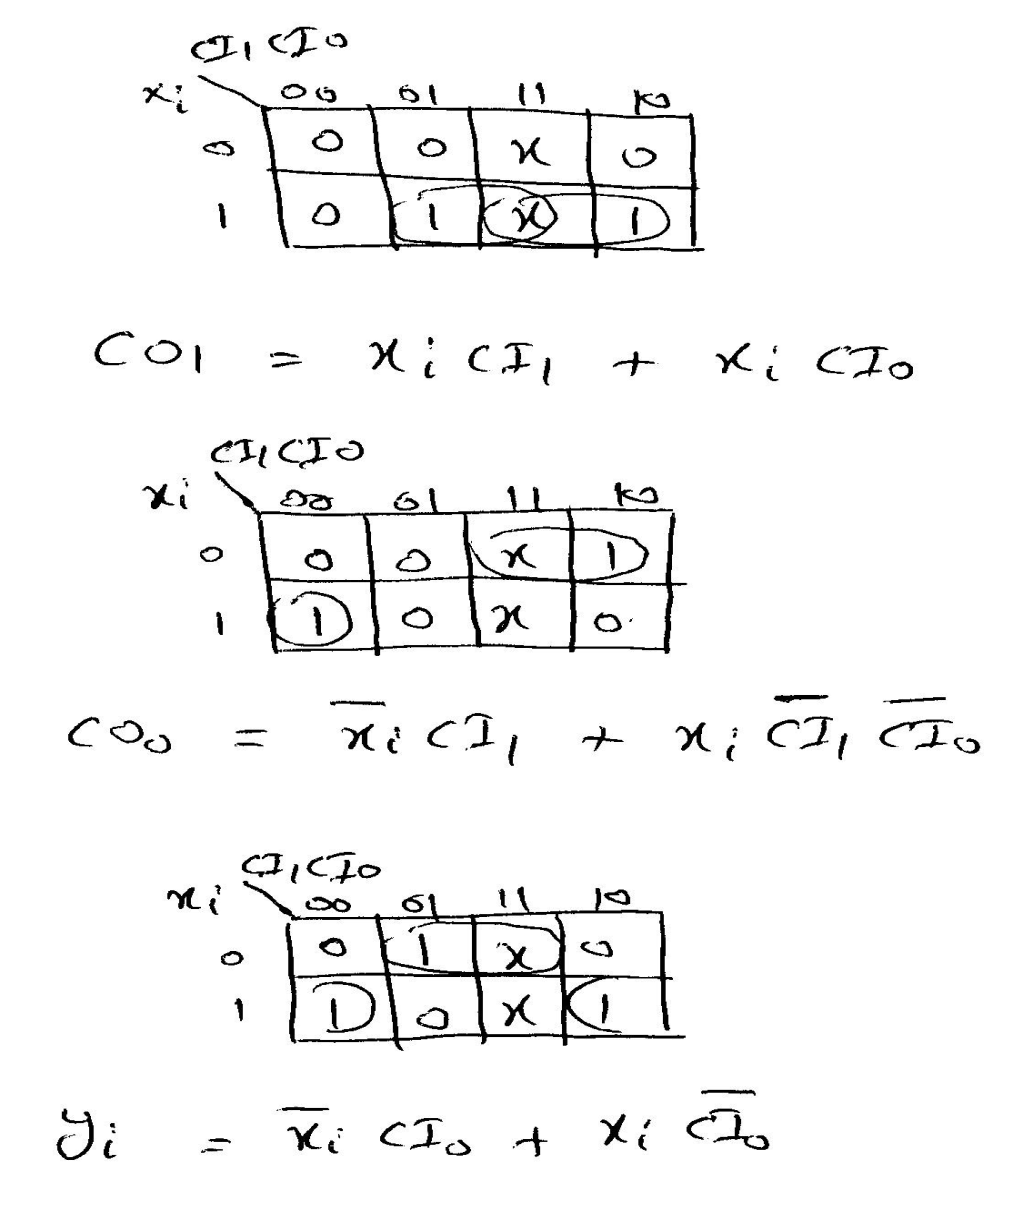 CI₁ CI₀
xi 00 01 11 10
0 0 0 x 0
1 0 1 x 1
CO1 = xi CI₁ + xi CI₀
CI₁ CI₀
xi 00 01 11 10
0 0 0 x 1
1 1 0 x 0
CO₀ = x̅i CI₁ + xi C̅I̅₁ C̅I̅₀
CI₁ CI₀
xi 00 01 11 10
0 0 1 x 0
1 1 0 x 1
yi = x̅i CI₀ + xi C̅I̅₀